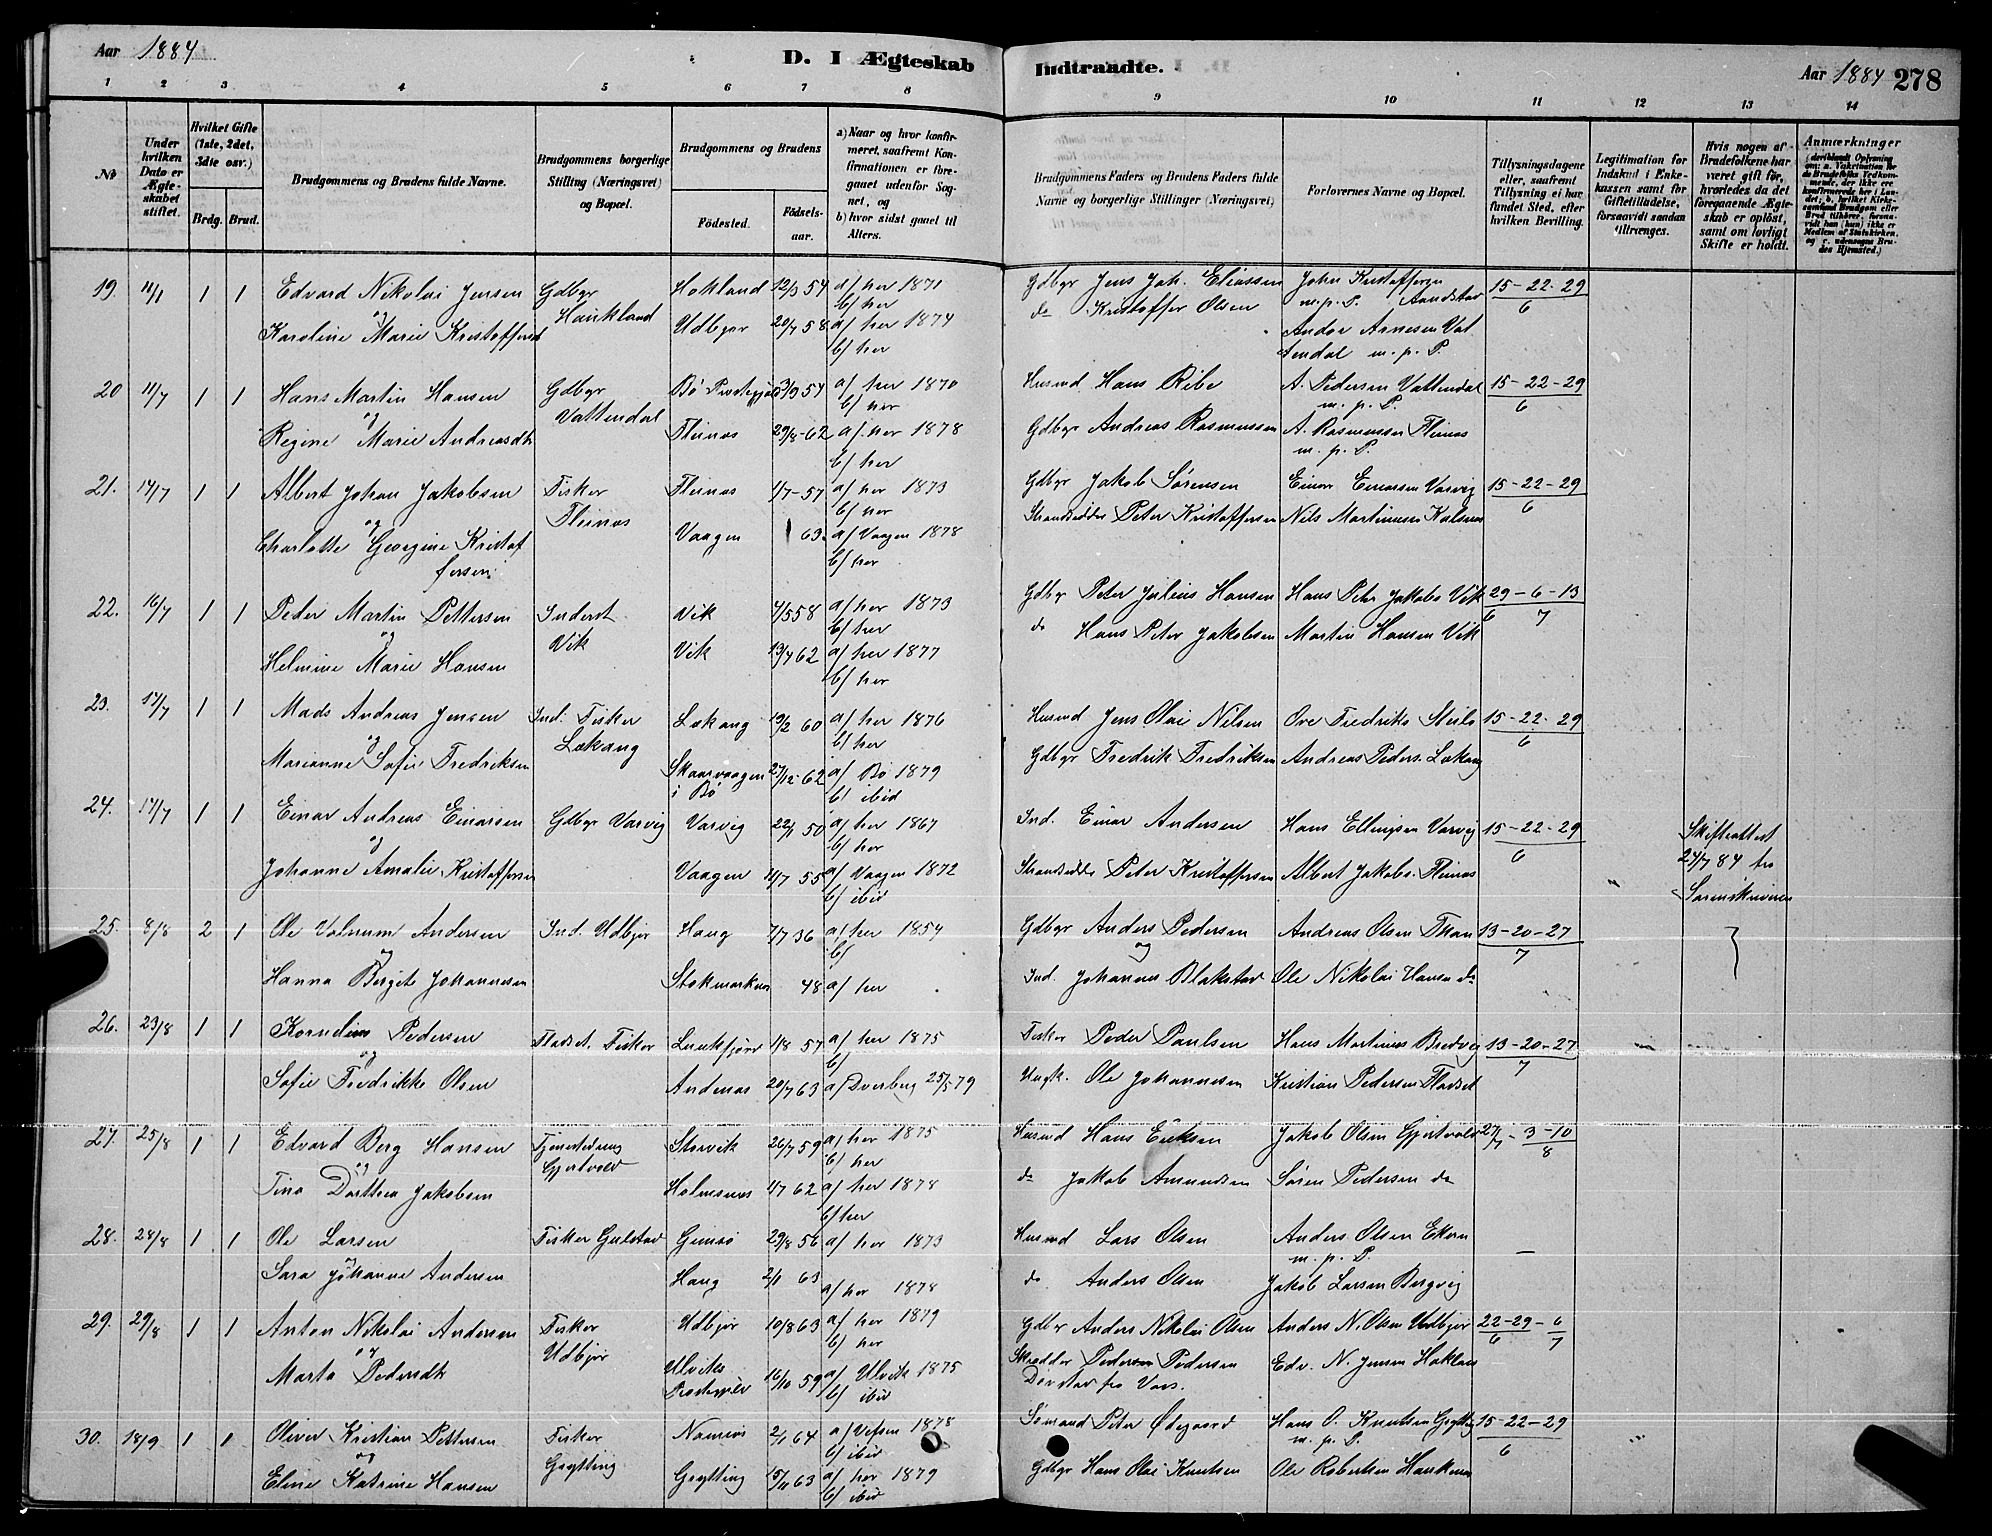 Aar 1884
D. I Ægteskab Indtraadte.
Aar 1884 278
1 2 3 4 5 6 7 8 9 10 11 12 13 14
No
Under hvilken Dato er Ægteskabet stiftet.
Hvilket Gifte (1ste, 2det, 3die osv.)
Brdg. Brud.
Brudgommens og Brudens fulde Navne.
Brudgommens borgerlige Stilling (Næringsvei) og Bopæl.
Brudgommens og Brudens
Fødested. Fødselsaar.
a) Naar og hvor konfirmeret, saafremt Konfirmationen er foregaaet udenfor Sognet, og
b) hvor sidst gaaet til Alters.
Brudgommens Faders og Brudens Faders fulde Navne og borgerlige Stillinger (Næringsvei)
Forlovernes Navne og Bopæl.
Tillysningsdagene eller, saafremt Tillysning ei har fundet Sted, efter hvilken Bevilling.
Legitimation for Indskud i Enkekassen samt for Giftetilladelse, forsaavidt saadan tiltrænges.
Hvis nogen af Brudefolkene har været gift før, hvorledes da det foregaaende Ægteskab er opløst, samt om lovligt Skifte er holdt.
Anmærkninger
19. 1 1 Edvard Nikolai Jensen Gdbgr Hokland 12/3 54 a/ her 1871 Gdbgr Jens Joh. Eliassen Johan Kristoffersen 15-22-29
og Haukland b/ her do Kristoffer Olsen m.p.P. Aandstad 6
Karoline Marie Kristoffersd Udbjør 20/7 58 a/ her 1874 Andor Arnesen Vat
b/ her tendal m.p.P.
20 11/7 1 1 Hans Martin Hansen Gdbgr Bø Præstegjæld 3/9 54 a/ her 1870 Husmd Hans Ribe A. Pedersen Vattendal 15-22-29
og Vattendal b/ her m.p.P. 6
Regine Marie Andreasdtr Fleinæs 29/8-62 a/ her 1878 Gdbgr Andreas Rasmussen A. Rasmussen Fleinæs
b/ her m.p.P.
21. 14/7 1 1 Albert Johan Jakobsen Fisker Fleinæs 1/7-57 a/ her 1873 Gdbgr Jakob Sørensen Einar Einarsen Varvig 15-22-29
og Fleinæs b/ her Strandsidder Peter Kristoffersen Nils Martinusen Kalsnes 6
Charlotte Georgine Kristof Vaagen 63. a/ Vaagen 1878
fersen b/ her
22. 16/7 1 1 Peder Martin Pettersen Inderst Vik 4/5 58 a/ her 1873 Gdbgr Peter Julius Hansen Hans Peter Jakobs Vik 29-6-13
og Vik b/ her do Hans Peter Jakobsen Martin Hansen Vik 6 7
Helmine Marie Hansen Vik 13/4 62 a/ her 1877
b/ her
23. 17/7 1 1 Mads Andreas Jensen Ind. Fisker Lekang 19/2 60 a/ her 1876 Husmd Jens Olai Nilsen Ove Fredriks Steilo 15-22-29
og Lekang b/ her 6
Marianne Sofie Fredriksen Skaarvaagen 27/12-62 a/ Bø 1879 Gdbgr Fredrik Fredriksen Andreas Peders. Lekang
i Bø b/ ibid
24. 17/7 1 1 Einar Andreas Einarsen Gdbgr Varvig Varvig 22/1 50 a/ her 1867 Ind. Einar Andersen Hans Ellingsen Varvig 15-22-29 Skifteattest
og b/ her 6 27/7 84 fra
Johanne Amalie Kristoffersen Vaagen 11/7 55 a/ Vaagen 1872 Strandsidder Peter Kristoffersen Albert Jakobs. Fleinæs Sorenskriveren
b/ ibid
25. 8/8 2 1 Ole Andersen Ind. Udbjør Haug 7/7 36 a/ her 1854 Gdbgr Anders Pedersen Andreas Olsen Than 13-20-27
og b/ og 7
Hanna Bergit Johannesen Stokmarknes 48 a/ her Ind. Johannes Blokstad Ole Nikolai Hansen do
26. 23/8 1 1 Kornelius Pedersen Fladset. Fisker 1/8 57 a/ her 1875 Fisker Peder Paulsen Hans Martinus Bredvig 13-20-27
og b/ 7
Sofie Fredrikke Olsen Andenæs 20/7 63 a/ Dverberg 25/5 79 Ungk. Ole Johannesen Kristian Pedersen Fladset
27. 25/8 1 1 Edvard Berg Hansen Tjenestedreng Storvik 26/7 59 a/ her 1875 Husmd Hans Eriksen Jakob Olsen Gjertvold 27/7-3-10
og Gjertvold b/ her 8
Tina Dorthea Jakobsen Holmsnes 4/7 62 a/ her 1878 do Jakob Amundsen Søren Pedersen do
b/ her
28. 28/8 1 1 Ole Larsen Fisker Gulstad Gimsø 29/8 56 a/ her 1873 Husmd Lars Olsen Anders Olsen Ekern —
og m.p.P.
Sara Johanne Andersen Haug 2/1 63 a/ her 1878 do Anders Olsen Jakob Larsen Bergvig
29. 29/8 1 1 Anton Nikolai Andersen Fisker Udbjør 10/8 63 a/ her 1879 Gdbgr Anders Nikolai Olsen Anders N. Olsen Udbjør 22-29-6
og Udbjør b/ her 6 7
Marta Pedersdtr Ulviks 16/10 59 a/ Ulvik 1875 Skrædder Pedersen Pedersen Edv. N. Jensen Hokland
Præstegjæld b/ ibid fra Vors.
30. 18/9 1 1 Oliver Kristian Pettersen Fisker 2/1 64 a/ Vefsen 1878 Sømand Peter Ødegaard Hans O. Knutsen Grytting 15-22-29
og Grytting b/ ibid m.p.P. 6
Eline Katrine Hansen Grytting 15/11 63 a/ her 1879 Gdbgr Hans Olai Knutsen Ole Robertsen Haukenes
b/ ibid